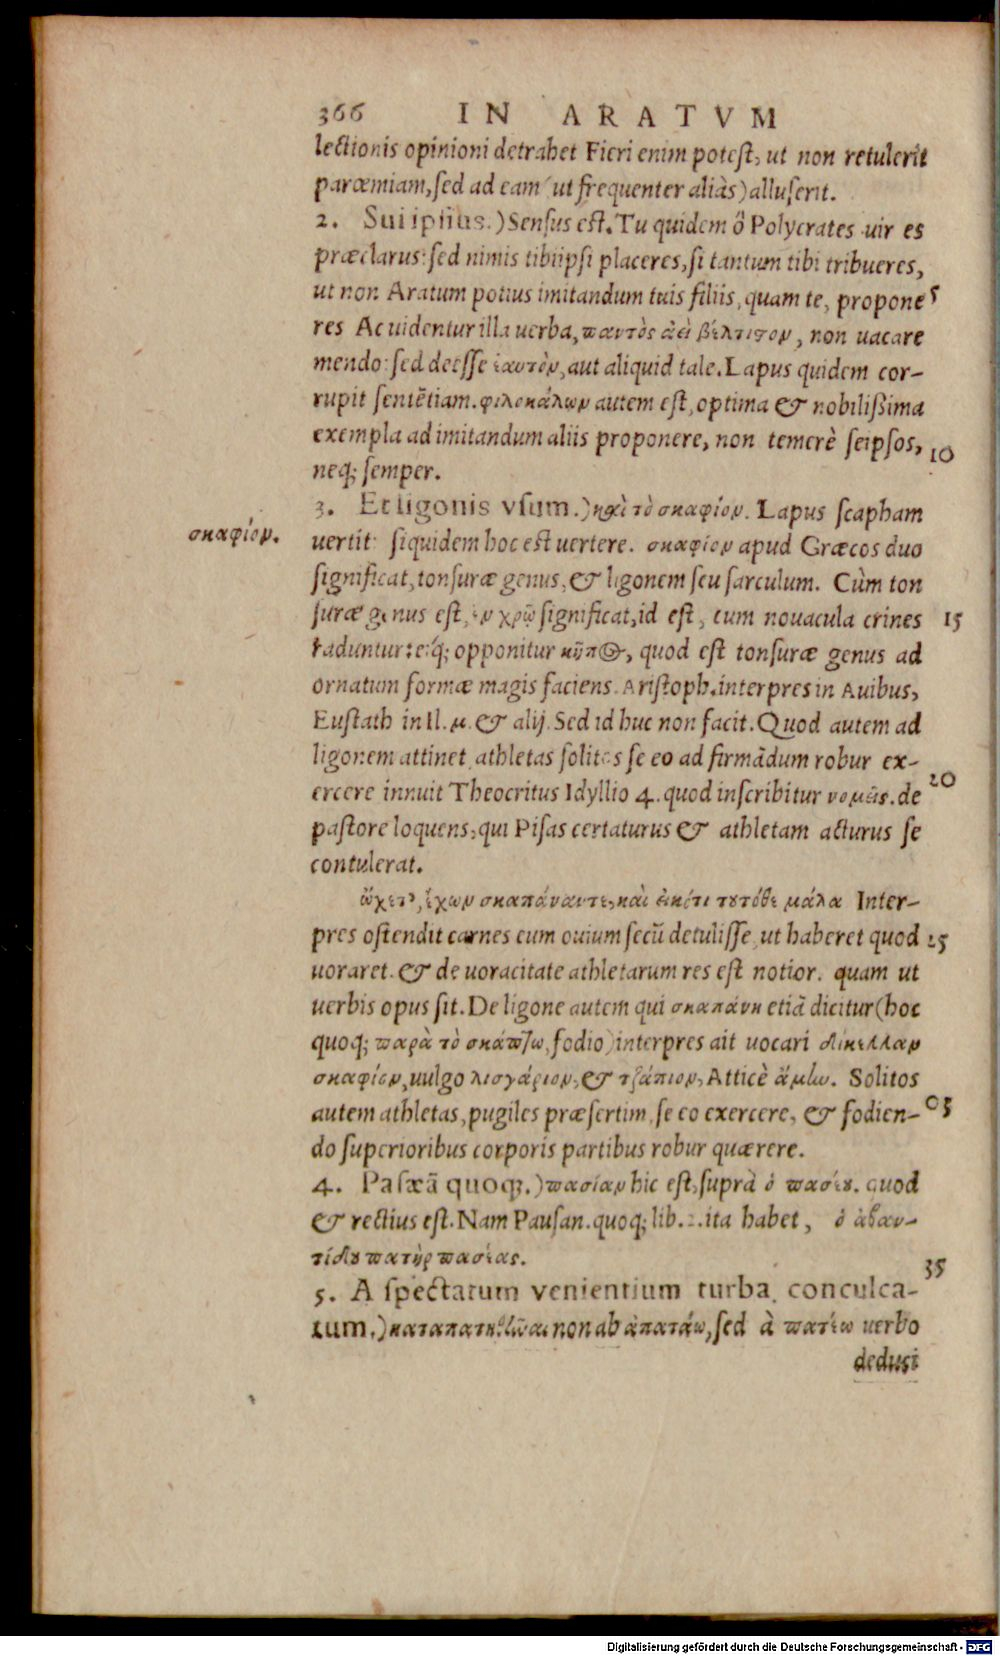 366 IN ARATVM
lectionis opinioni detrahet Fieri enim potest, ut non retulerit
parœmiam, sed ad eam (ut frequenter aliàs) alluserit.
2. Sui ipsius.) Sensus est. Tu quidem ô Polycrates uir es
præclarus: sed nimis tibiipsi placeres, si tantum tibi tribueres,
ut non Aratum potius imitandum tuis filiis, quam te, propone 5
res Ac uidentur illa uerba, παντὸς ἀεὶ βέλτιστον, non uacare
mendo: sed deesse ἑαυτὸν, aut aliquid tale. Lapus quidem cor-
rupit sentẽtiam. φιλοκάλων autem est, optima & nobilißima
exempla ad imitandum aliis proponere, non temerè seipsos, 10
neq; semper.
3. Et ligonis vsum.) καὶ τὸ σκαφίον. Lapus scapham
σκαφίον. uertit: siquidem hoc est uertere. σκαφίον apud Græcos duo
significat, tonsuræ genus, & ligonem seu sarculum. Cùm ton
suræ genus est, ἐν χρῷ significat, id est, cum nouacula crines 15
raduntur: eíq; opponitur κῆπος, quod est tonsuræ genus ad
ornatum formæ magis faciens. Aristoph. interpres in Auibus,
Eustath in Il. μ. & alij. Sed id huc non facit. Quod autem ad
ligonem attinet, athletas solitos se eo ad firmãdum robur ex-
ercere innuit Theocritus Idyllio 4. quod inscribitur νομεῖς. de 20
pastore loquens, qui Pisas certaturus & athletam acturus se
contulerat.
ᾤχετ', ἔχων σκαπάναντε, καὶ εἰκότι τουτόθε μάλα Inter-
pres ostendit carnes eum ouium secũ detulisse, ut haberet quod 25
uoraret. & de uoracitate athletarum res est notior. quam ut
uerbis opus sit. De ligone autem qui σκαπάνη etiã dicitur (hoc
quoq; παρὰ τὸ σκάπτω, fodio) interpres ait uocari δίκελλαν
σκαφίον, uulgo λισγάριον, & τζάπιον, Atticè ἄμην. Solitos
autem athletas, pugiles præsertim, se eo exercere, & fodien- 03
do superioribus corporis partibus robur quærere.
4. Pasæã quoq;.) πασίαν hic est, suprà ὁ πασίου. quod
& rectius est. Nam Pausan. quoq; lib. 2. ita habet, ὁ ἀβαν-
τίδου πατὴρ πασέας.
35
5. A spectatum venientium turba conculca-
tum.) καταπατηθῆναι non ab ἀπατάω, sed à πατέω uerbo
deduci
Digitalisierung gefördert durch die Deutsche Forschungsgemeinschaft - DFG